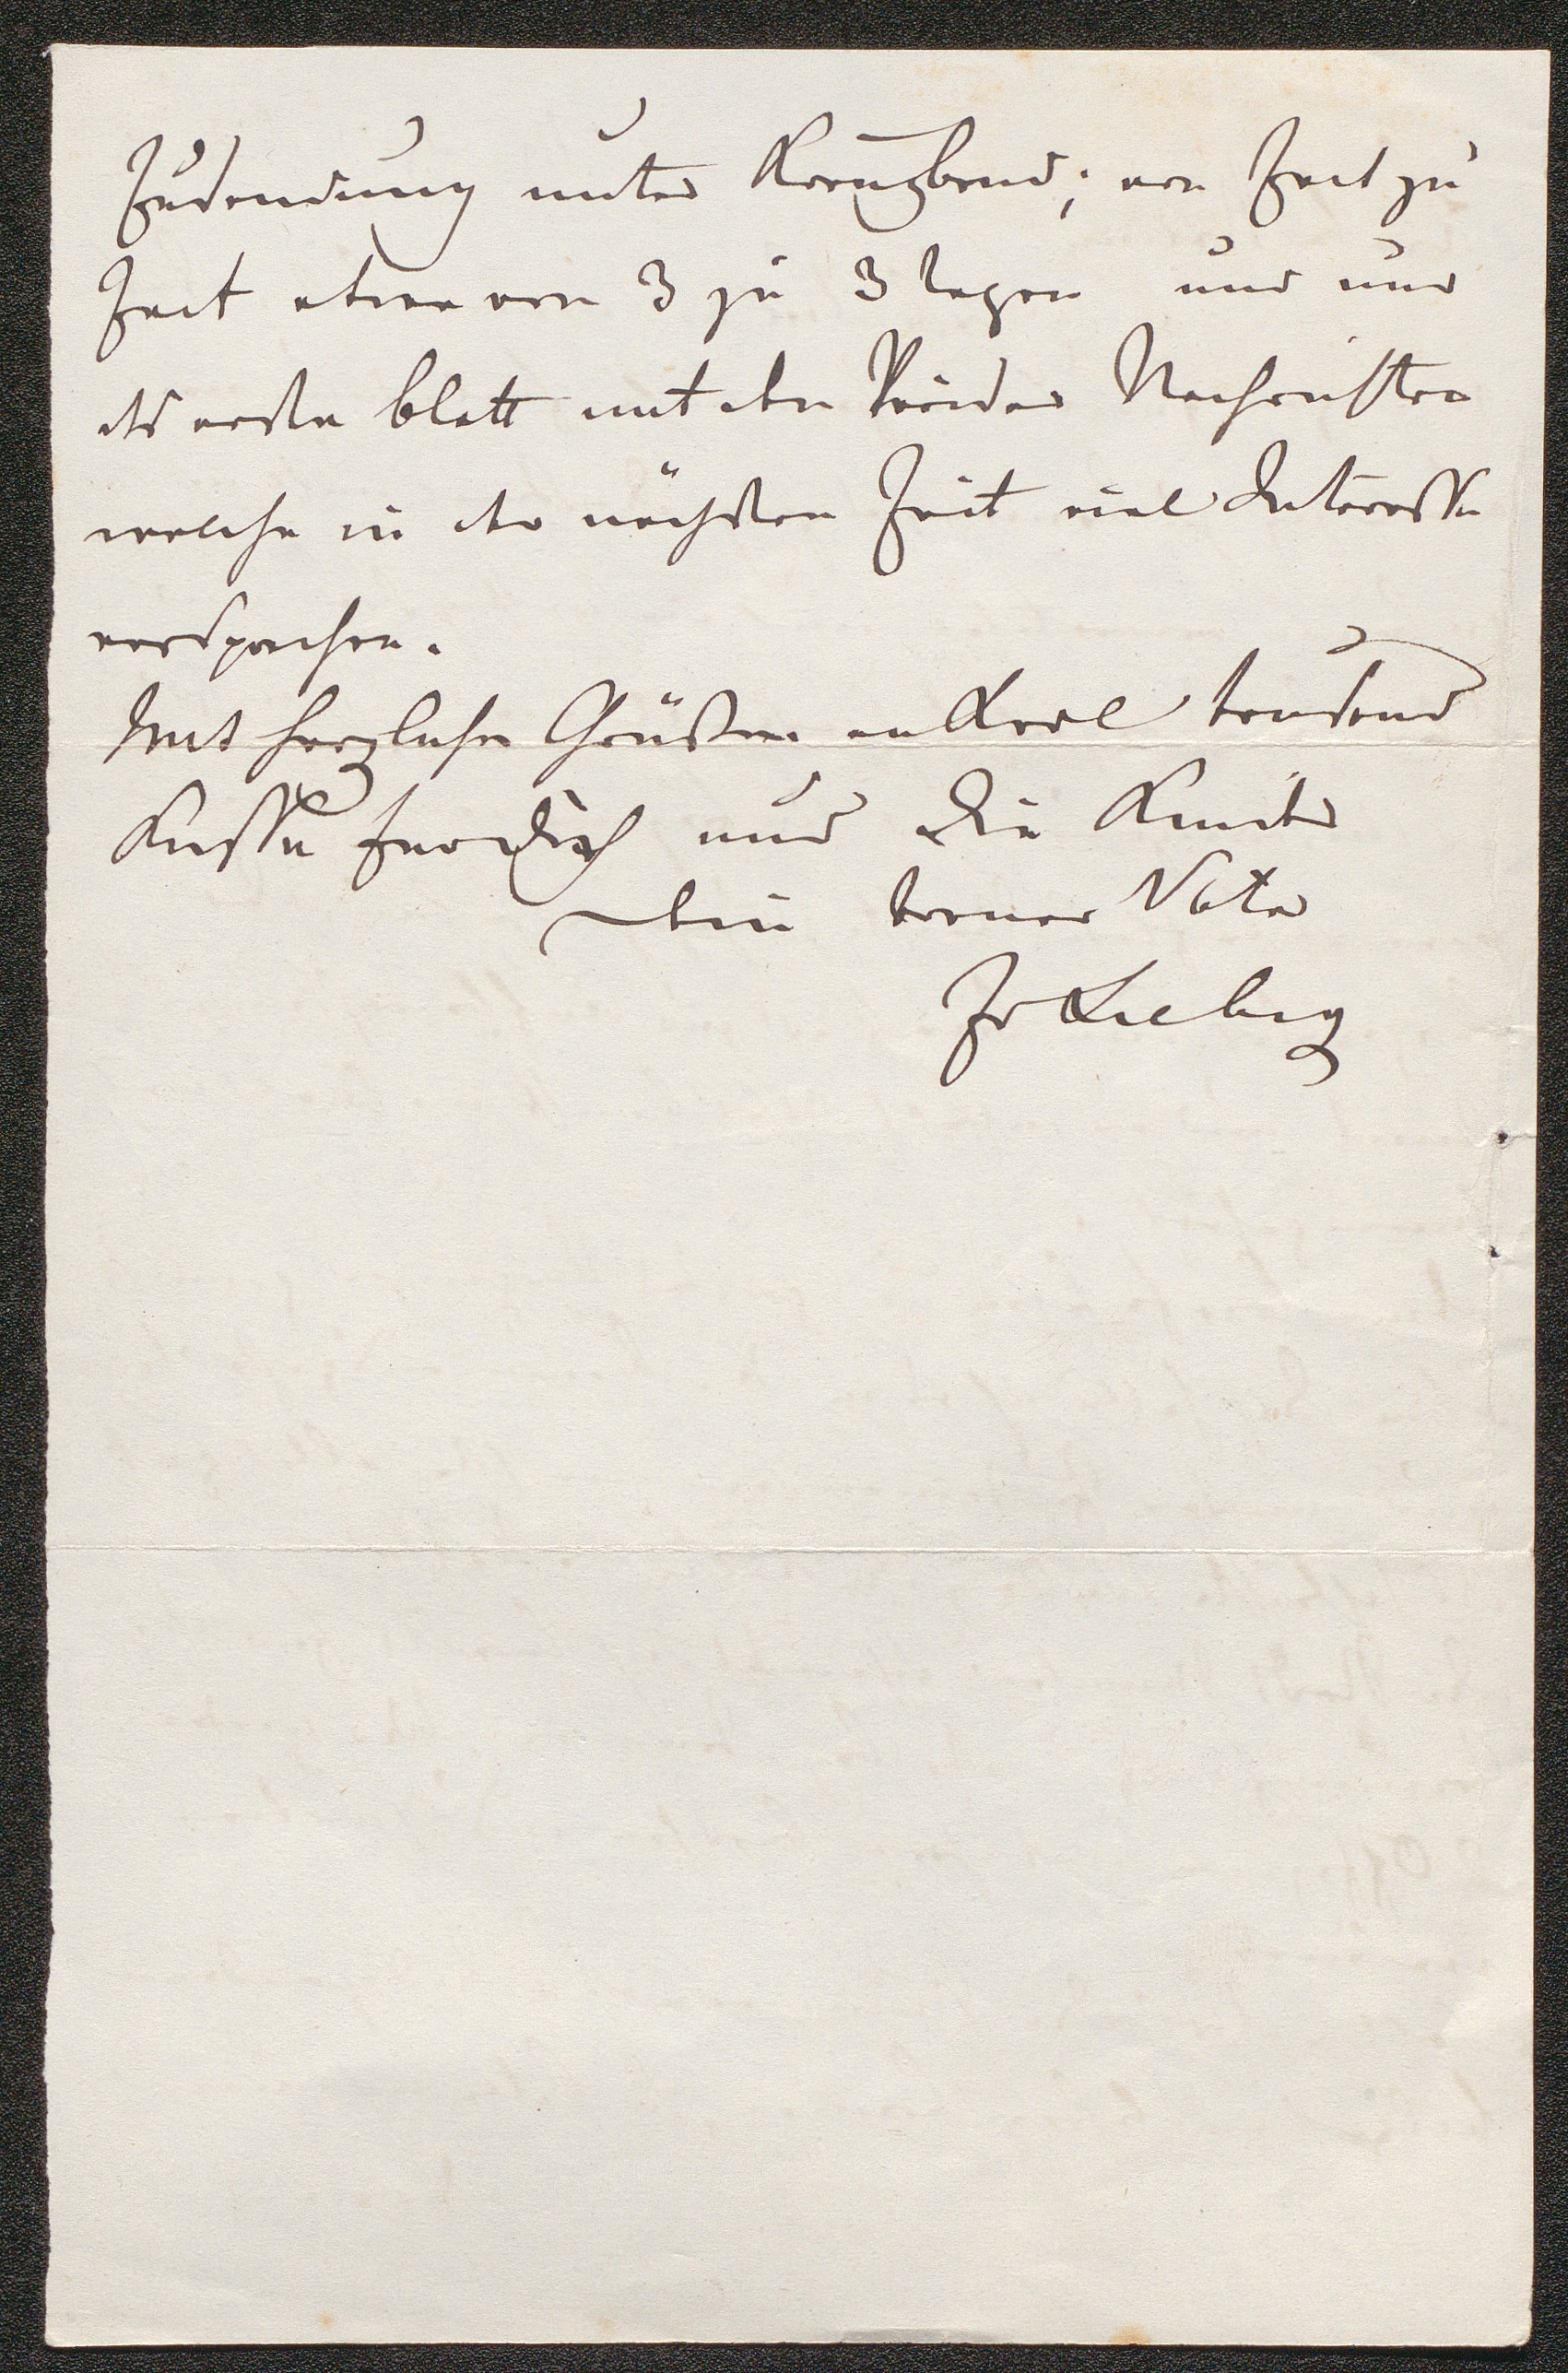 Zusendung unter Kreuzband; von Zeit zu
Zeit etwa von 3 zu 3 Tagen und nur
das erste Blatt mit den Pariser Nachrichten
welche in der nächsten Zeit viel Interesse
versprechen.
Mit herzlichen Grüßen an Karl tausend
Küsse für Dich und die Kinder
Dein treuer Vater
Jv Liebig